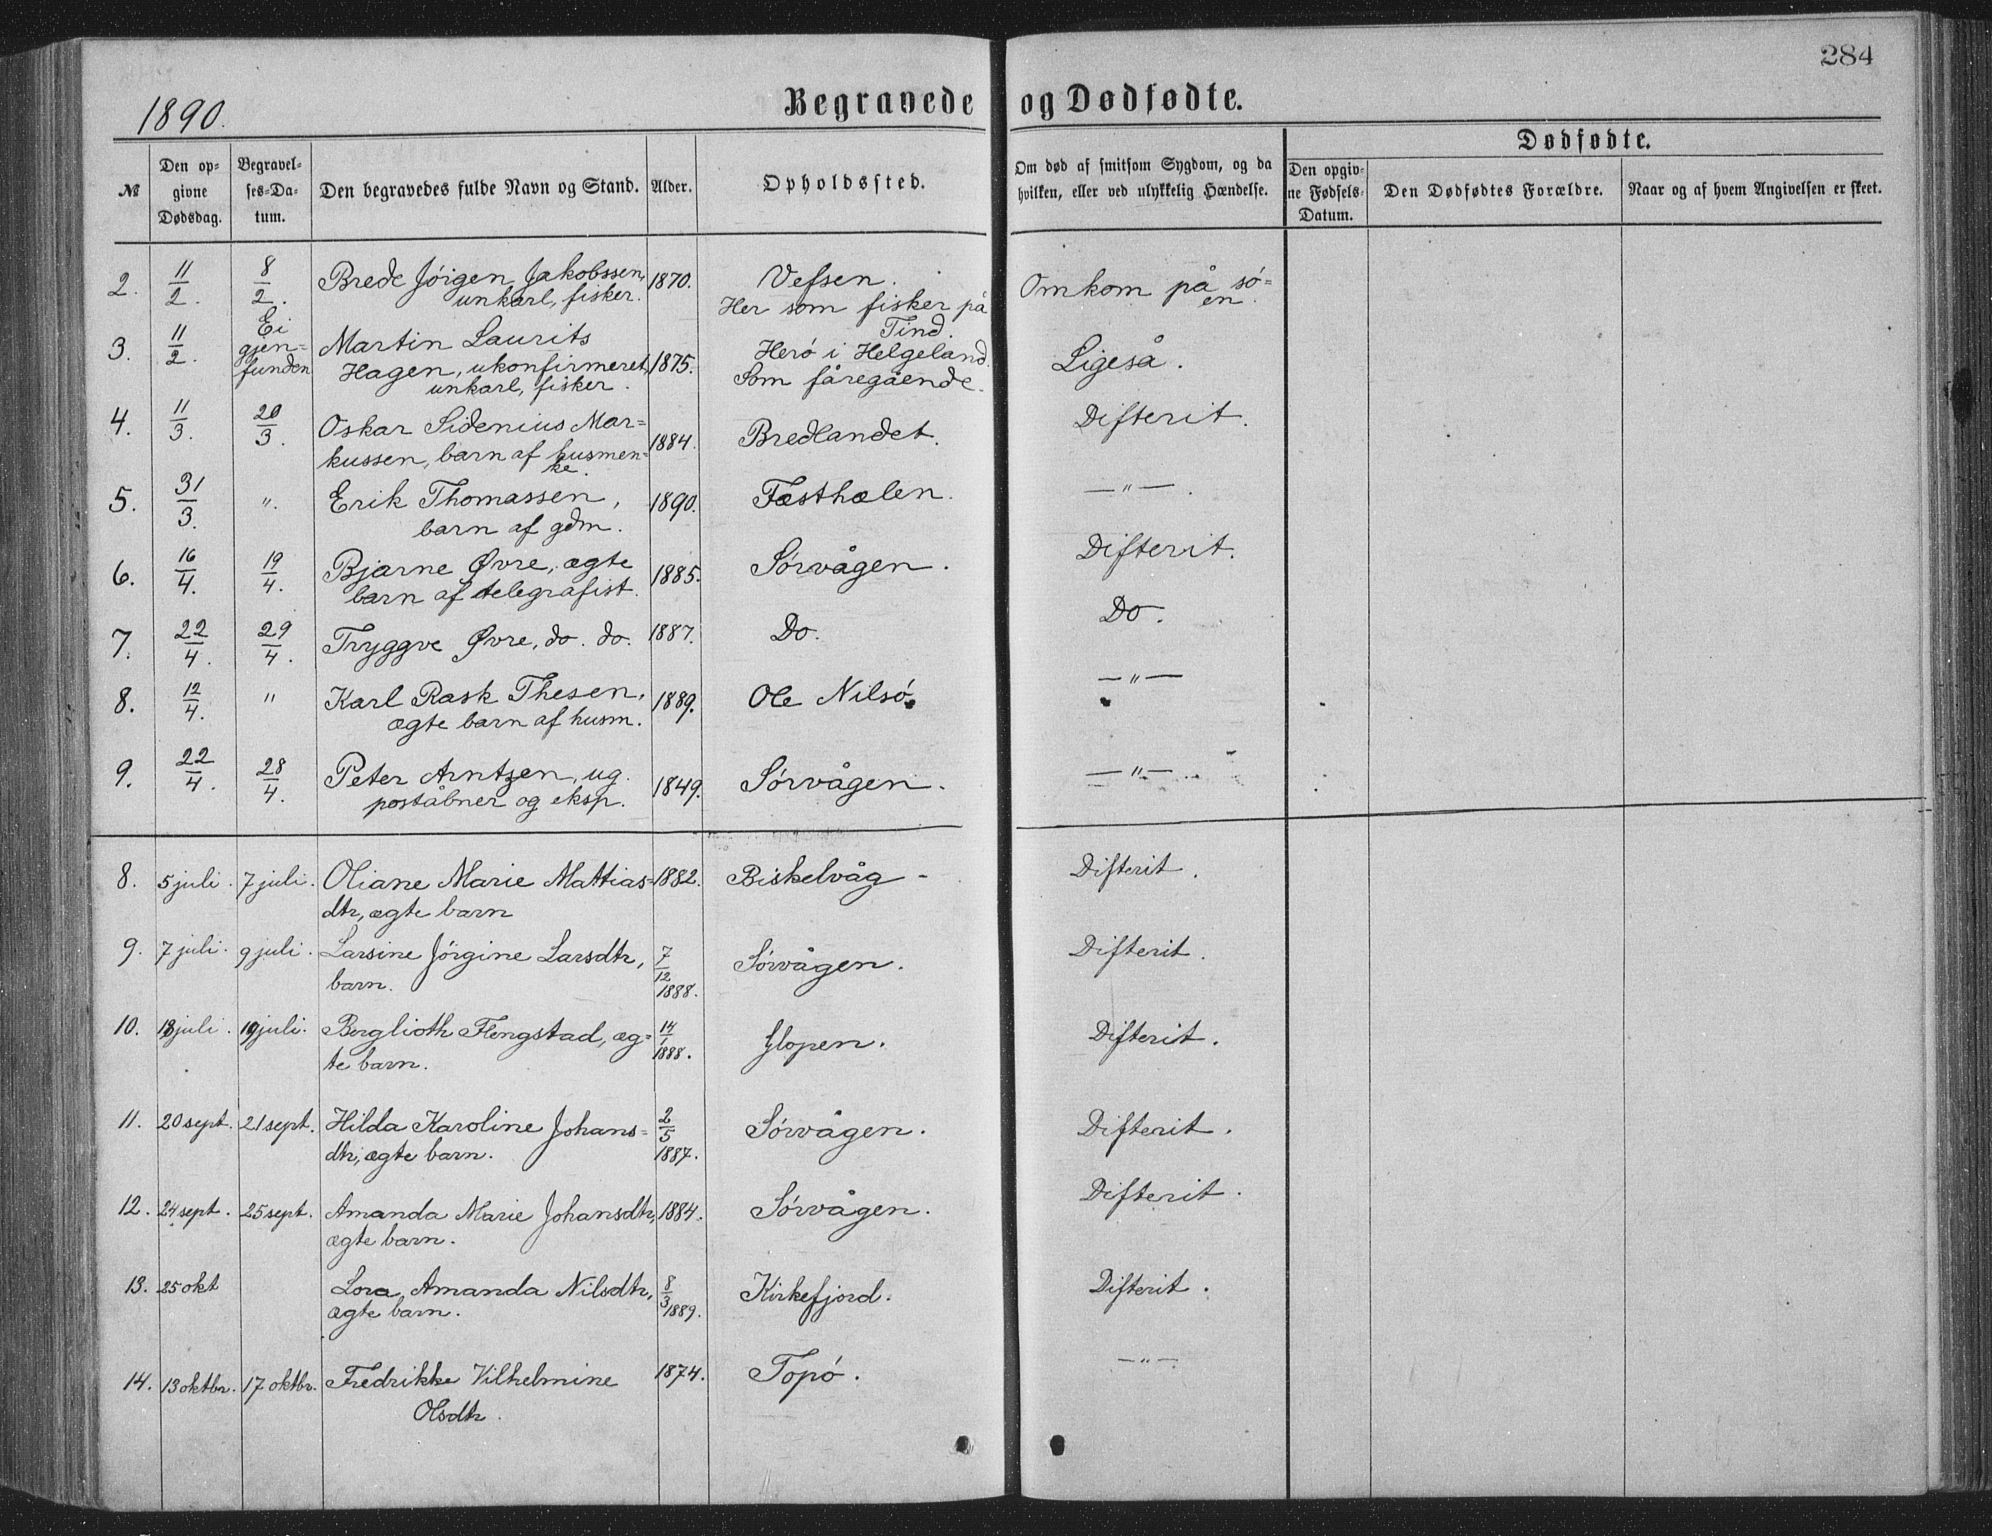 284
1890.
Begravede og Dødfødte.
№
Den op-
givne
Dødsdag.
Begravel-
ses-Da-
tum.
Den begravedes fulde Navn og Stand.
Alder.
Opholdssted.
Om død af smitsom Sygdom, og da
hvilken, eller ved ulykkelig Hændelse.
Dødfødte.
Den opgiv-
ne Fødsels-
Datum.
Den Dødfødtes Forældre.
Naar og af hvem Angivelsen er skeet.
2. 11/2. 8/2. Brede Jørgen Jakobssen, 1870. Vefsen. Omkom på sø-
unkarl, fisker. Her som fisker på en.
Tind.
3. 11/2. Ei Martin Laurits Herø i Helgeland. Ligeså.
gjen- Hagen, ukonfirmeret, 1875. Som fåregående.
funden unkarl, fisker.
4. 11/3. 20/3. Oskar Sidenius Mar- 1884. Bredlandet. Difterit.
kussen, barn af husmen-
ke.
5. 31/3. ". Erik Thomassen, 1890. Fæsthælen. —"—.
barn af gdm.
6. 16/4. 19/4. Bjarne Øvre, ægte 1885. Sørvågen. Difterit.
barn af telegrafist.
7. 22/4. 29/4. Tryggve Øvre, do. do. 1887. Do. Do.
8. 12/4. " Karl Rask Thesen, 1889. Ole Nilsø. —"—
ægte barn af husm.
9. 22/4. 28/4. Peter Arntzen, ug. 1849. Sørvågen. —"—
poståbner og eksp.
8. 5 juli. 7 juli. Oliane Marie Mattias- 1882. Biskelvåg - Difterit.
dtr, ægte barn
9. 7 juli. 9 juli. Larsine Jørgine Larsdtr, 7/12 1888. Sørvågen. Difterit.
barn.
10. 18 juli. 19 juli. Berglioth Flengstad, æg- 14/1 1888. Glopen. Difterit.
te barn.
11. 20 sept. 21 sept. Hilda Karoline Johans- 2/5 1887. Sørvågen. Difterit.
dtr, ægte barn.
12. 24 sept. 25 sept. Amanda Marie Johansdtr, 1884. Sørvågen. Difterit.
ægte barn.
13. 25 okt Lora Amanda Nilsdtr, 8/3 1889. Kirkefjord. Difterit.
ægte barn.
14. 13 oktbr. 17 oktbr. Fredrikke Vilhelmine 1874. Topø. —"—
Olsdtr.